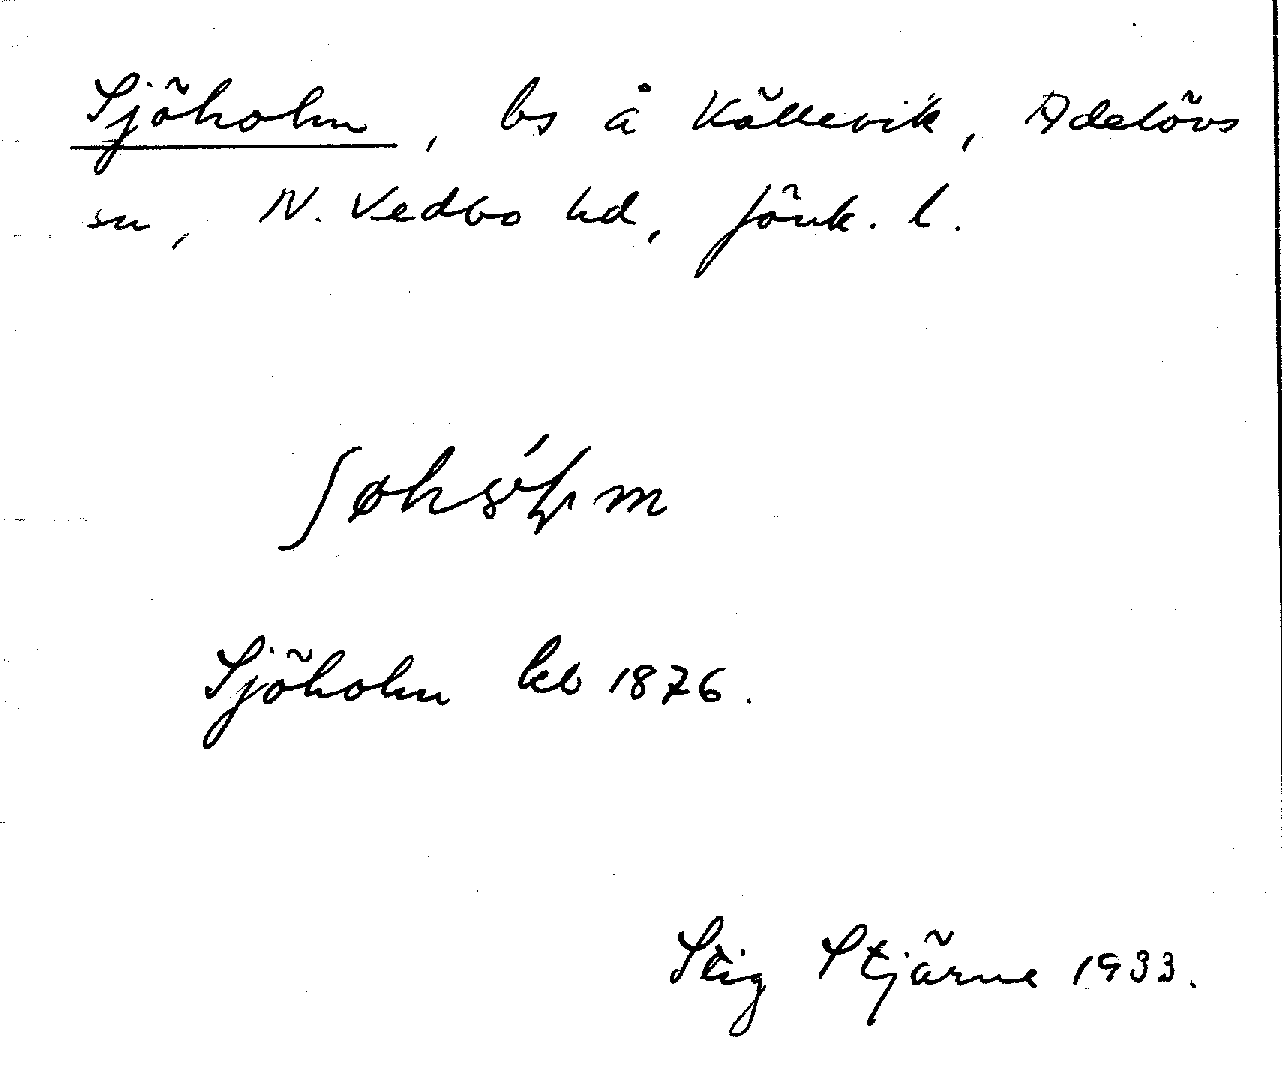 Sjöholm, bs å Källevik, Adelövs
sn, N. Vedbo hd, Jönk. l.
Sjöholm kb 1876.
Stig Stjärne 1933.